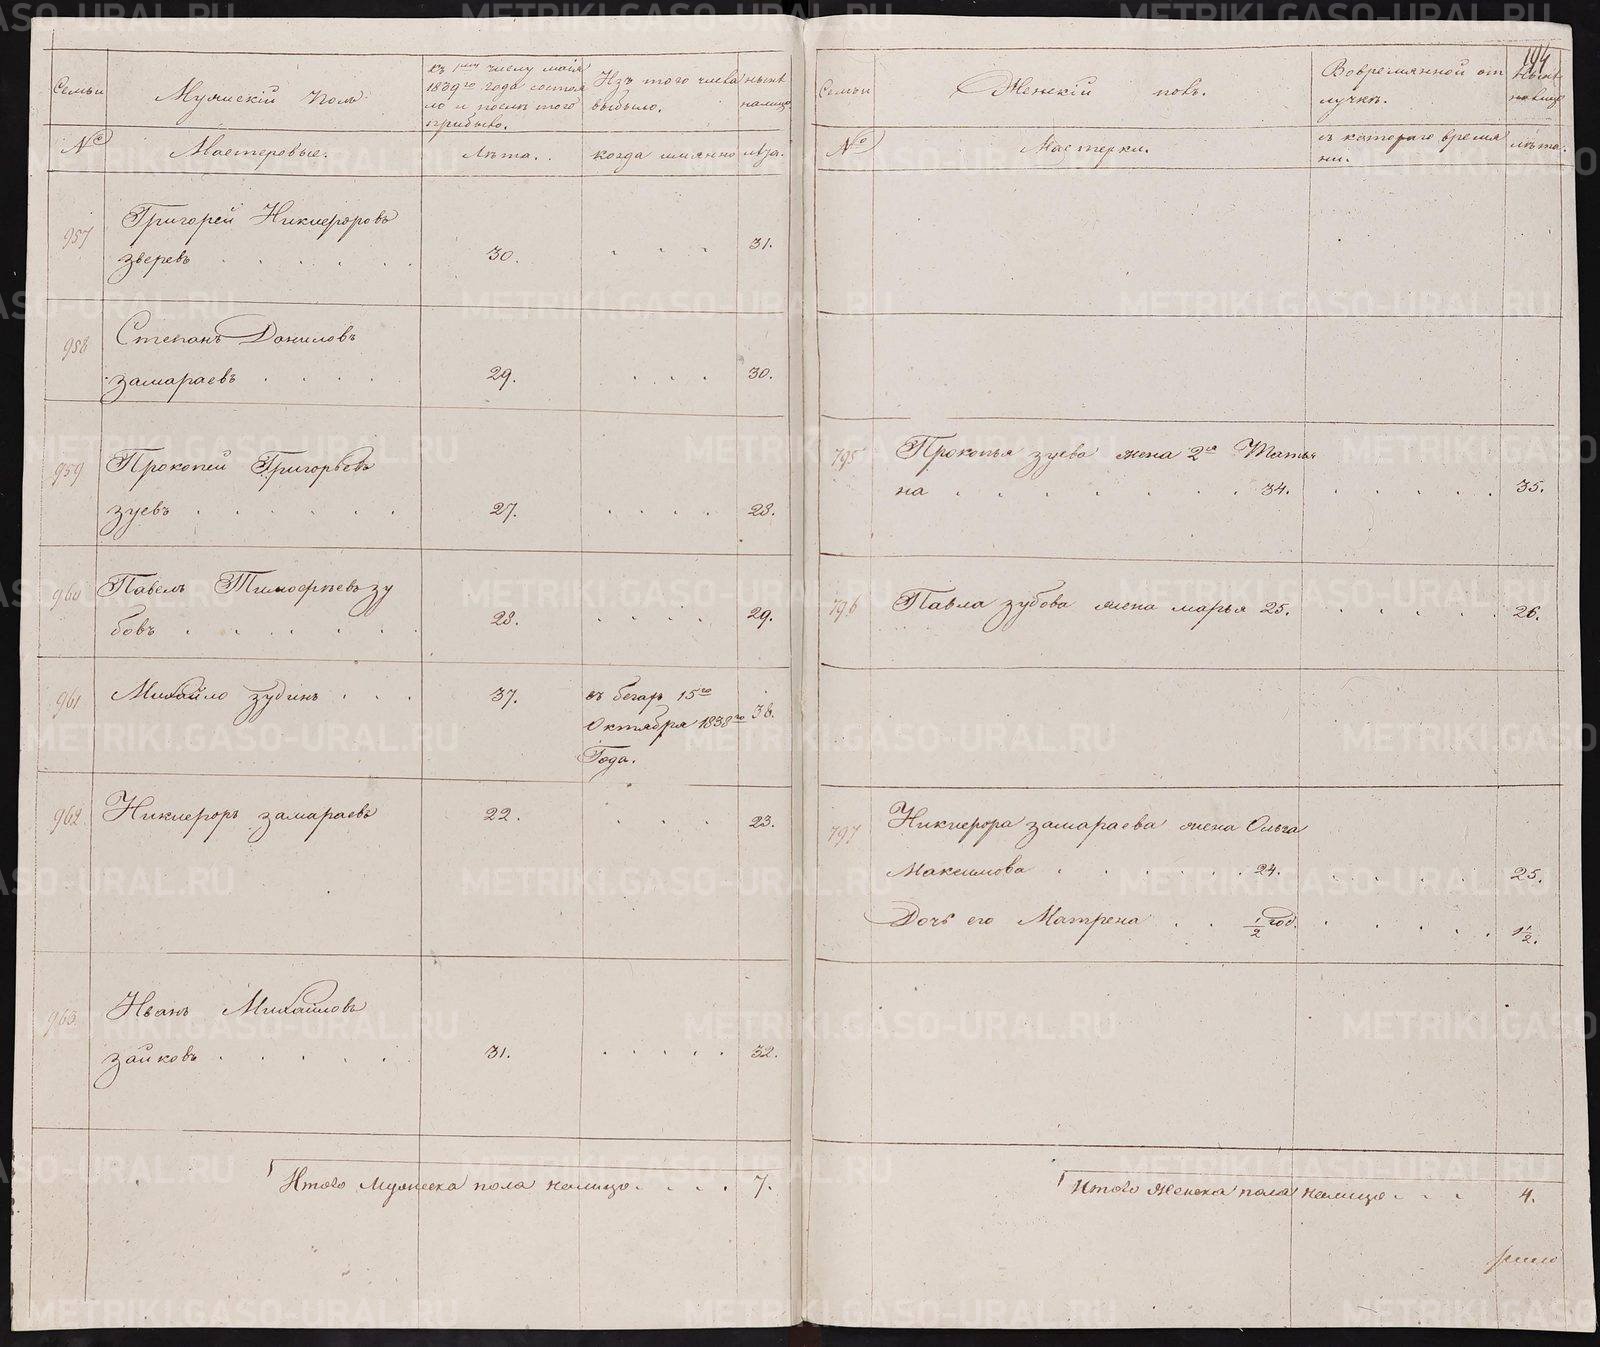 194
Семьи
Мужескій полъ
къ 1му числу маія
1839го года состоя
ло и послѣ того
прибыло.
Изъ того числа
выбыло.
нынѣ
налицо
№
Мастеровые.
Лѣта.
когда имянно
лѣта.
957
Григорей Никифоровъ
зверевъ . . . . . 30. . . . 31.
958
Степанъ Даниловъ
замараевъ . . . . 29. . . . . 30.
959
Прокопей Григорьевъ
зуевъ . . . . . . 27. . . . . 28.
960
Павелъ Тимофѣевъ зу
бовъ . . . . . . 28. . . . . 29.
961
Михайло зудинъ . . . 37. въ бегахъ 15го
Октября 1838го 38.
Года.
962
Никифоръ замараевъ 22. . . . 23.
963.
Иванъ Михайловъ
зайковъ . . . . . . 31. . . . . . 32.
Итого Мужеска пола налицо . . . . 7.
Семьи
Женскій полъ.
Вовремянной от
лучкѣ.
нынѣ
налицо
№
Мастерки.
съ котораго время
ни.
лѣта.
795
Прокопья зуева жена 2я Татья
на . . . . . . . . 34. . . . . . 35.
796
Павла зубова жена марья 25. . . . . . 26.
797
Никифора замараева жена Ольга
Максимова . . . . . 24. . . . . . 25.
Дочь его Матрена . . 1/2 год. . . . . . 1 1/2.
Итого Женска пола налицо . . . 4.
METRIKI.GASO-URAL.RU